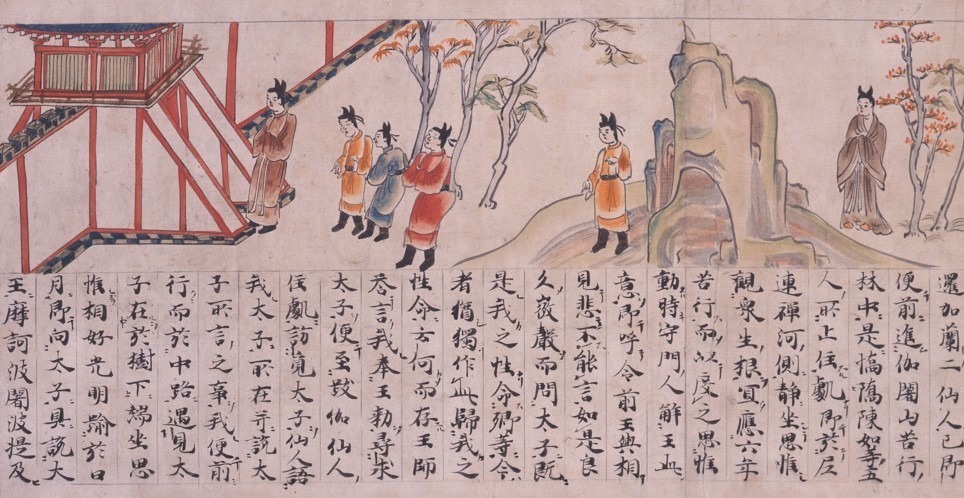 還加蘭二仙人已即
便前進伽闍山苦行
林中是憍隝陳如等五
人所止住處即於尼
連禪河側静坐思惟
觀衆生根冝應六年
苦行而以度之思惟
動時守門人解王此
意即呼令前王與相
見悲不能言如是良
久微聲而問太子既
是我之性命卿等今
者猶獨作此歸我之
性命云何而存王師
答言我奉王勑尋求
太子便至跋伽仙人
住處訪覓太子仙人語
我太子所在并說太
子所言之事我便前
行而於中路遇見太
子在於樹下端坐思
惟相好光明踰於日
月即向太子具說大
王摩訶波闍波提及